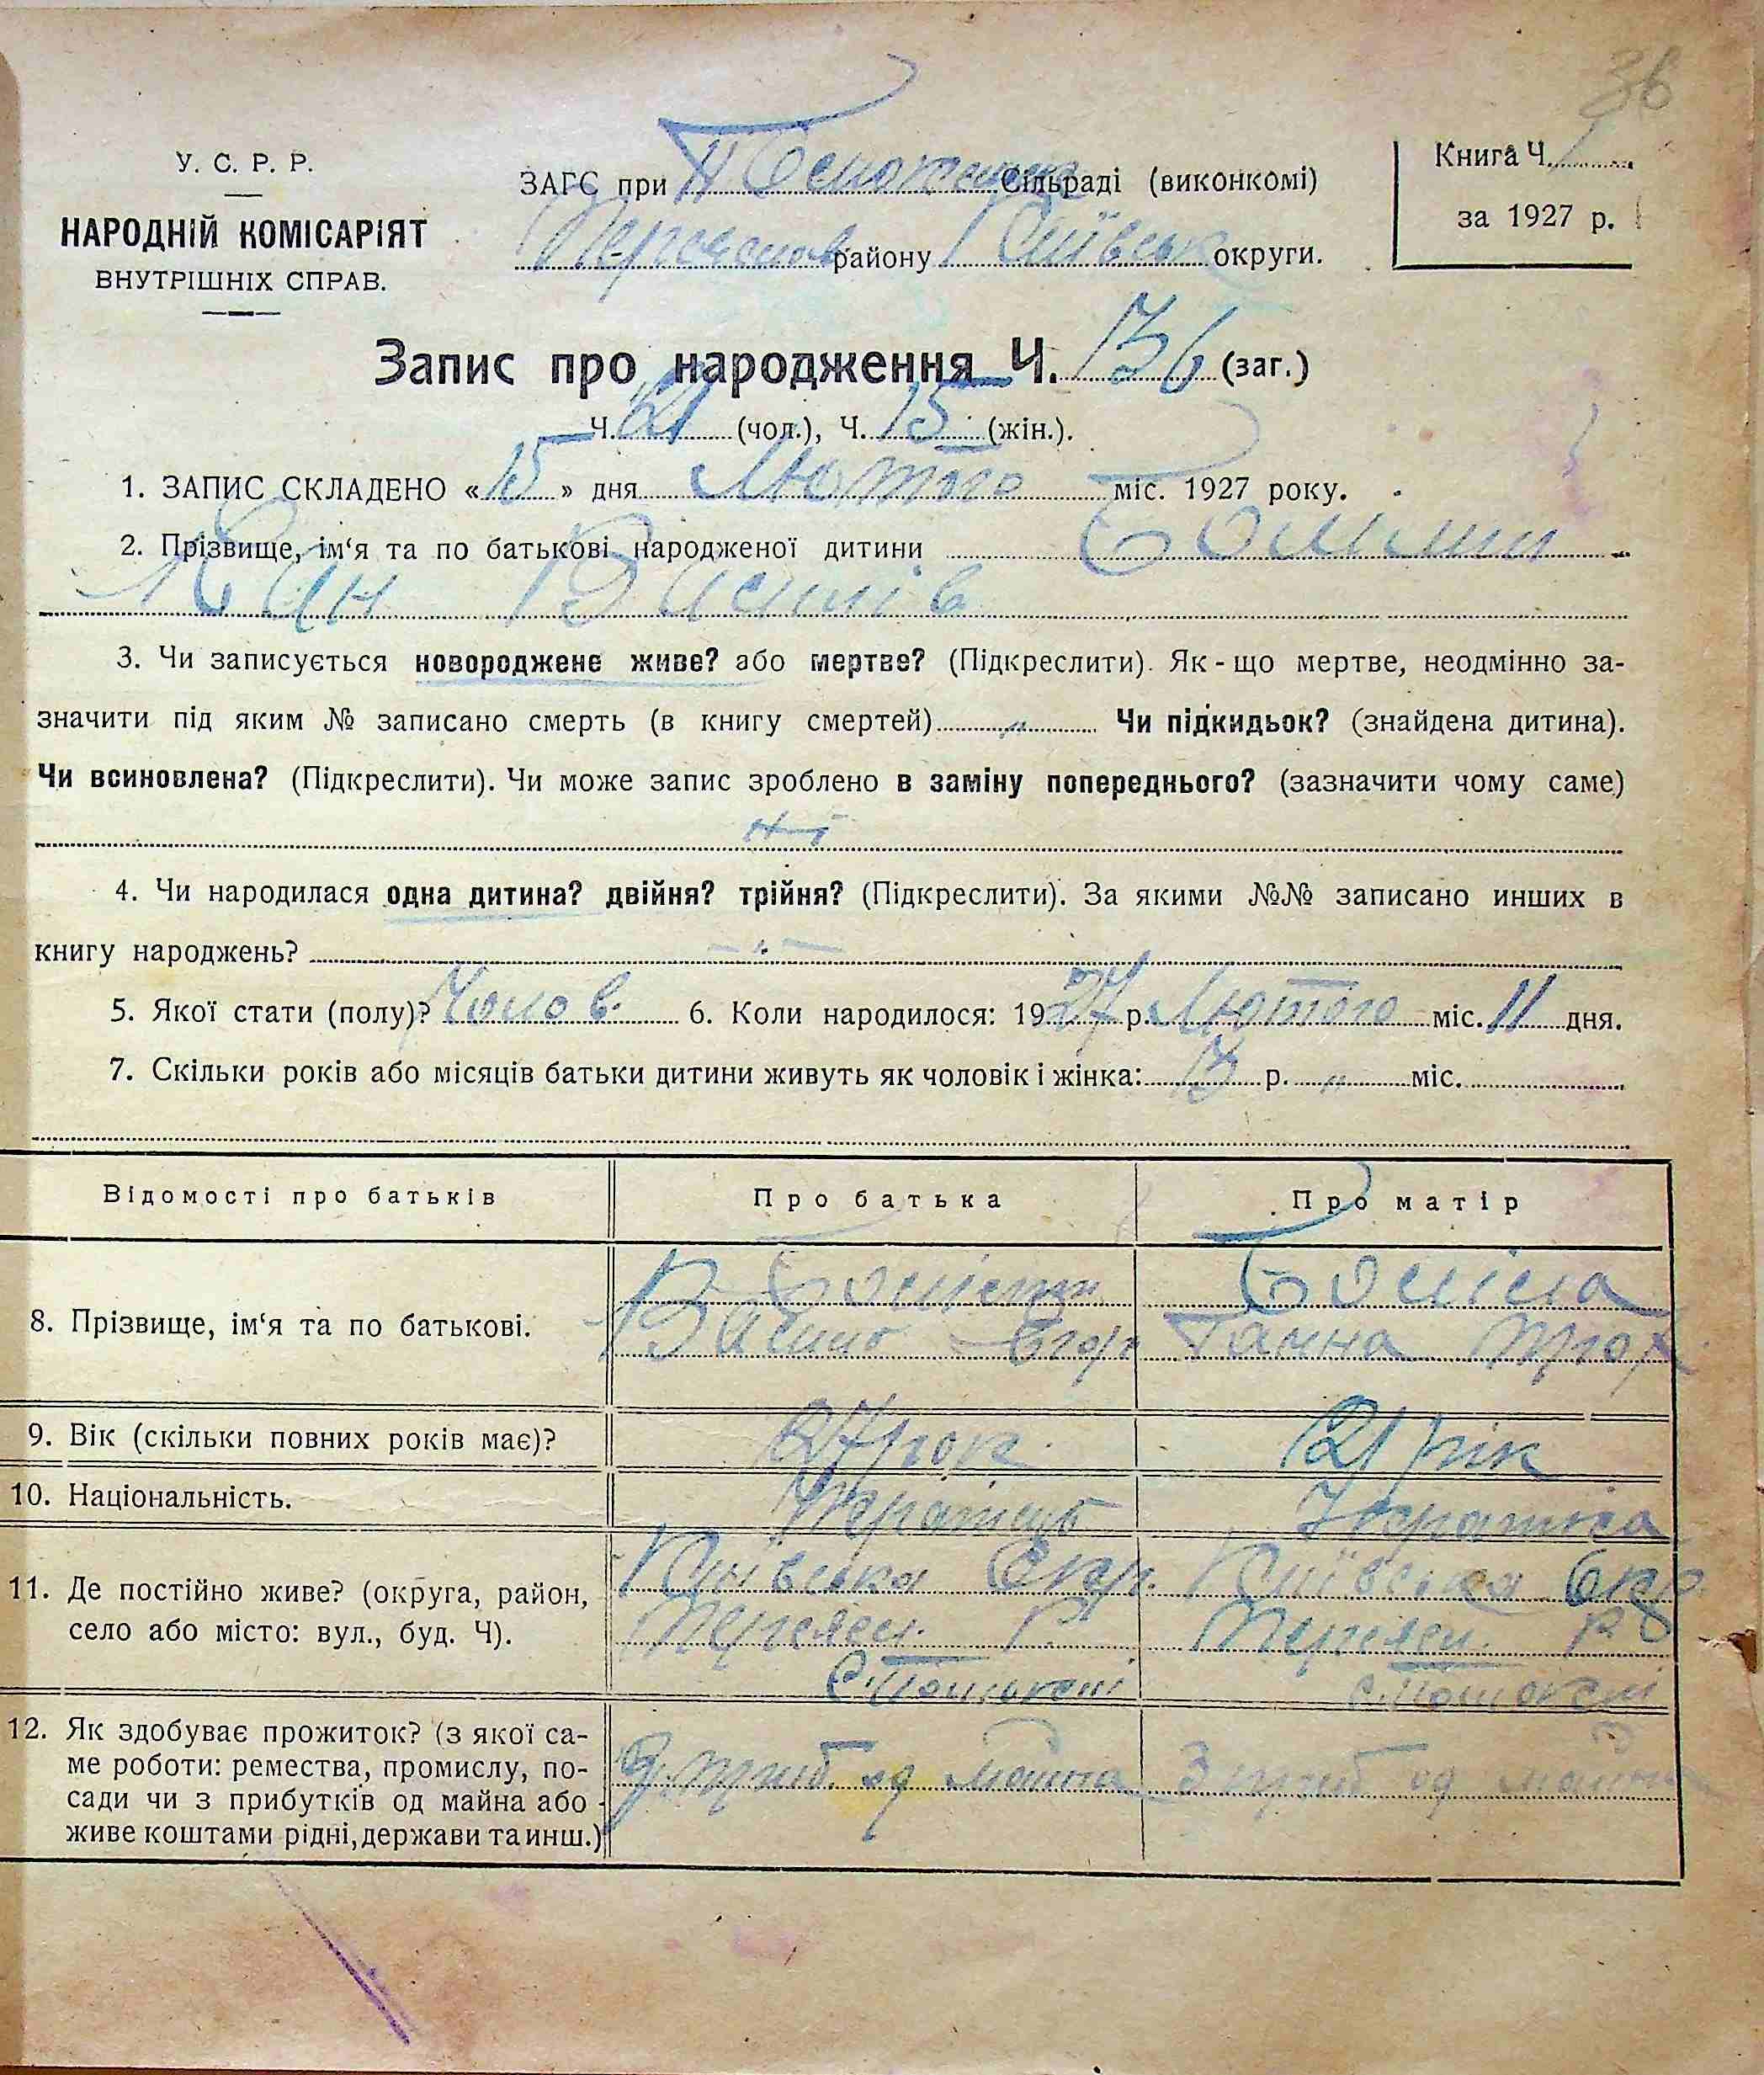 36
У. С. Р. Р.
НАРОДНІЙ КОМІСАРІЯТ
ВНУТРІШНІХ СПРАВ.
ЗАГС при Сільраді (виконкомі)
району Київськ округи.
Книга Ч.
за 1927 р.
Запис про народження Ч. 36 (заг.)
Ч. 21 (чол.), Ч. 15 (жін.).
1. ЗАПИС СКЛАДЕНО «15» дня Лютого міс. 1927 року.
2. Прізвище, ім‘я та по батькові народженої дитини
Іван Василів
3. Чи записується новороджене живе? або мертве? (Підкреслити). Як-що мертве, неодмінно за-
значити під яким № записано смерть (в книгу смертей) „ Чи підкидьок? (знайдена дитина).
Чи всиновлена? (Підкреслити). Чи може запис зроблено в заміну попереднього? (зазначити чому саме)
ні
4. Чи народилася одна дитина? двійня? трійня? (Підкреслити). За якими №№ записано инших в
книгу народжень? — „ —
5. Якої стати (полу)? Чолов. 6. Коли народилося: 1927 р. Лютого міс. 11 дня.
7. Скільки років або місяців батьки дитини живуть як чоловік і жінка: 3 р. „ міс.
Відомості про батьків Про батька Про матір
8. Прізвище, ім‘я та по батькові.
Василь Єгор Ганна Троф
9. Вік (скільки повних років має)? 27 рок. 21 рік
10. Національність. Українець Українка
11. Де постійно живе? (округа, район,
село або місто: вул., буд. Ч).
Київська Окр. Київська Окр.
Переясл. Р. Переясл. Р.
12. Як здобуває прожиток? (з якої са-
ме роботи: ремества, промислу, по-
сади чи з прибутків од майна або
живе коштами рідні, держави та инш.)
З приб. од майна З приб од майна